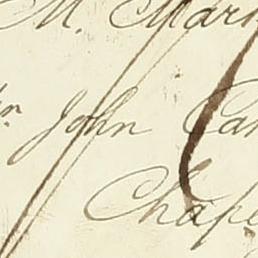 M. Mar
n John Ca
Chape